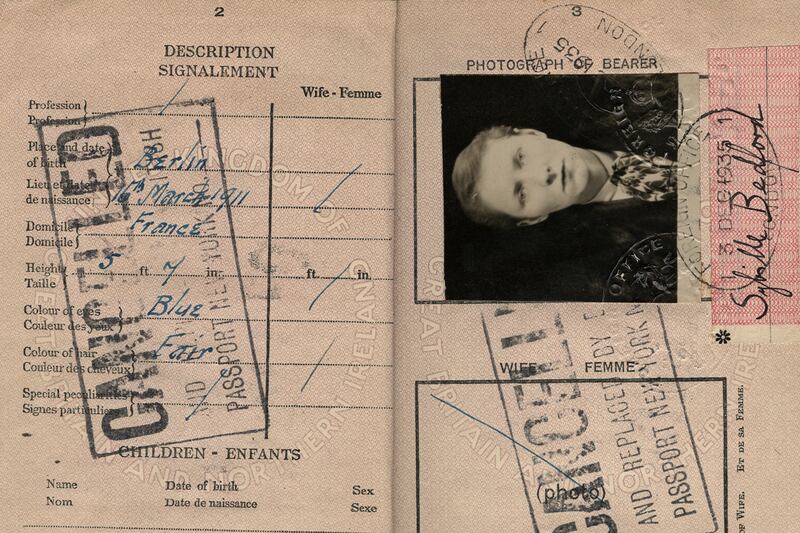 2
DESCRIPTION
SIGNALEMENT
Wife - Femme
Profession
Profession
Place and date
of birth
Berlin
Lieu et date
de naissance
16th March 1911
Domicile
Domicile
France
Height
Taille
5 ft. 7 in.
ft. in.
Colour of eyes
Couleur des yeux
Blue
Colour of hair
Couleur des cheveux
Fair
Special peculiarities
Signes particuliers
CANCELLED
AND
PASSPORT NEW YORK
KINGDOM OF
GREAT BRITAIN AND NORTHERN IRELAND
CHILDREN - ENFANTS
Name
Nom
Date of birth
Date de naissance
Sex
Sexe
3
PHOTOGRAPH OF BEARER
LONDON
1935
FOREIGN OFFICE
3 DEC 1935
Sybille Bedford
*
WIFE FEMME
(photo)
CANCELLED
AND REPLACED BY
PASSPORT NEW YORK
OF WIFE. ET DE SA FEMME.